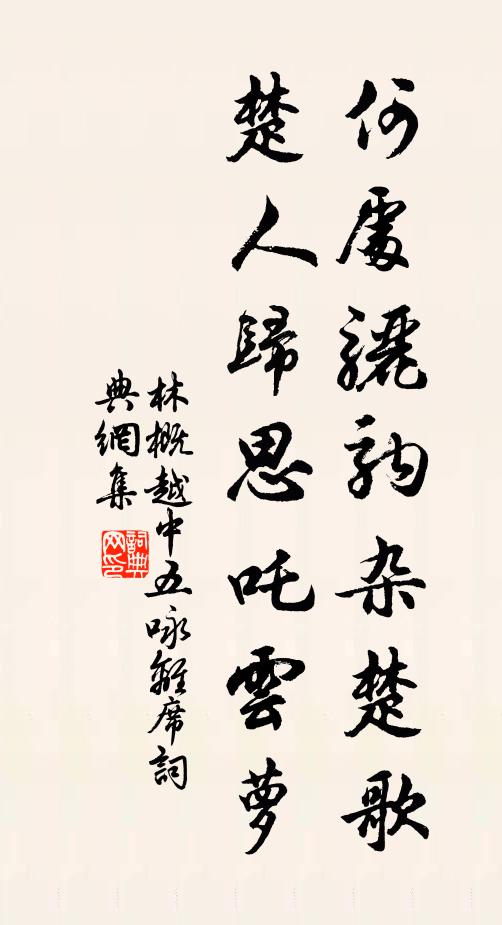 何處驪駒杂楚歌
楚人歸思吒雲夢
林概越中五咏離席詞
典網集
詞典网印